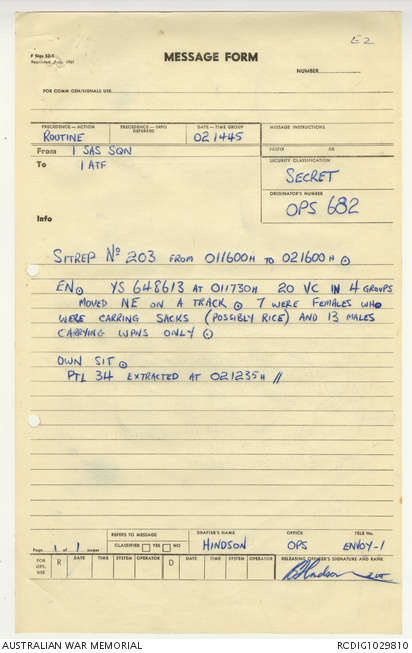 E2
F Sigs 52-1
MESSAGE FORM
NUMBER
FOR COMM CEN/SIGNALS USE
PRECEDENCE—ACTION PRECEDENCE—INFO DEFERRED DATE—TIME GROUP MESSAGE INSTRUCTIONS
ROUTINE 021445
PREFIX GR
From 1 SAS SQN
SECURITY CLASSIFICATION
To 1 ATF
SECRET
ORIGINATOR'S NUMBER
OPS 682
Info
SITREP No 203 FROM 011600H TO 021600H ⊙
EN⊙ YS 648613 AT 011730H 20 VC IN 4 GROUPS
MOVED NE ON A TRACK ⊙ 7 WERE FEMALES WHO
WERE CARRING SACKS (POSSIBLY RICE) AND 13 MALES
CARRYING WPNS ONLY ⊙
OWN SIT ⊙
PTL 34 EXTRACTED AT 021235H //
REFERS TO MESSAGE DRAFTER'S NAME OFFICE TELE No.
Page 1 of 1 pages CLASSIFIED YES NO HINDSON OPS ENVOY-1
FOR OPS. USE R DATE TIME SYSTEM OPERATOR D DATE TIME SYSTEM OPERATOR RELEASING OFFICER'S SIGNATURE AND RANK
AUSTRALIAN WAR MEMORIAL RCDIG1029810